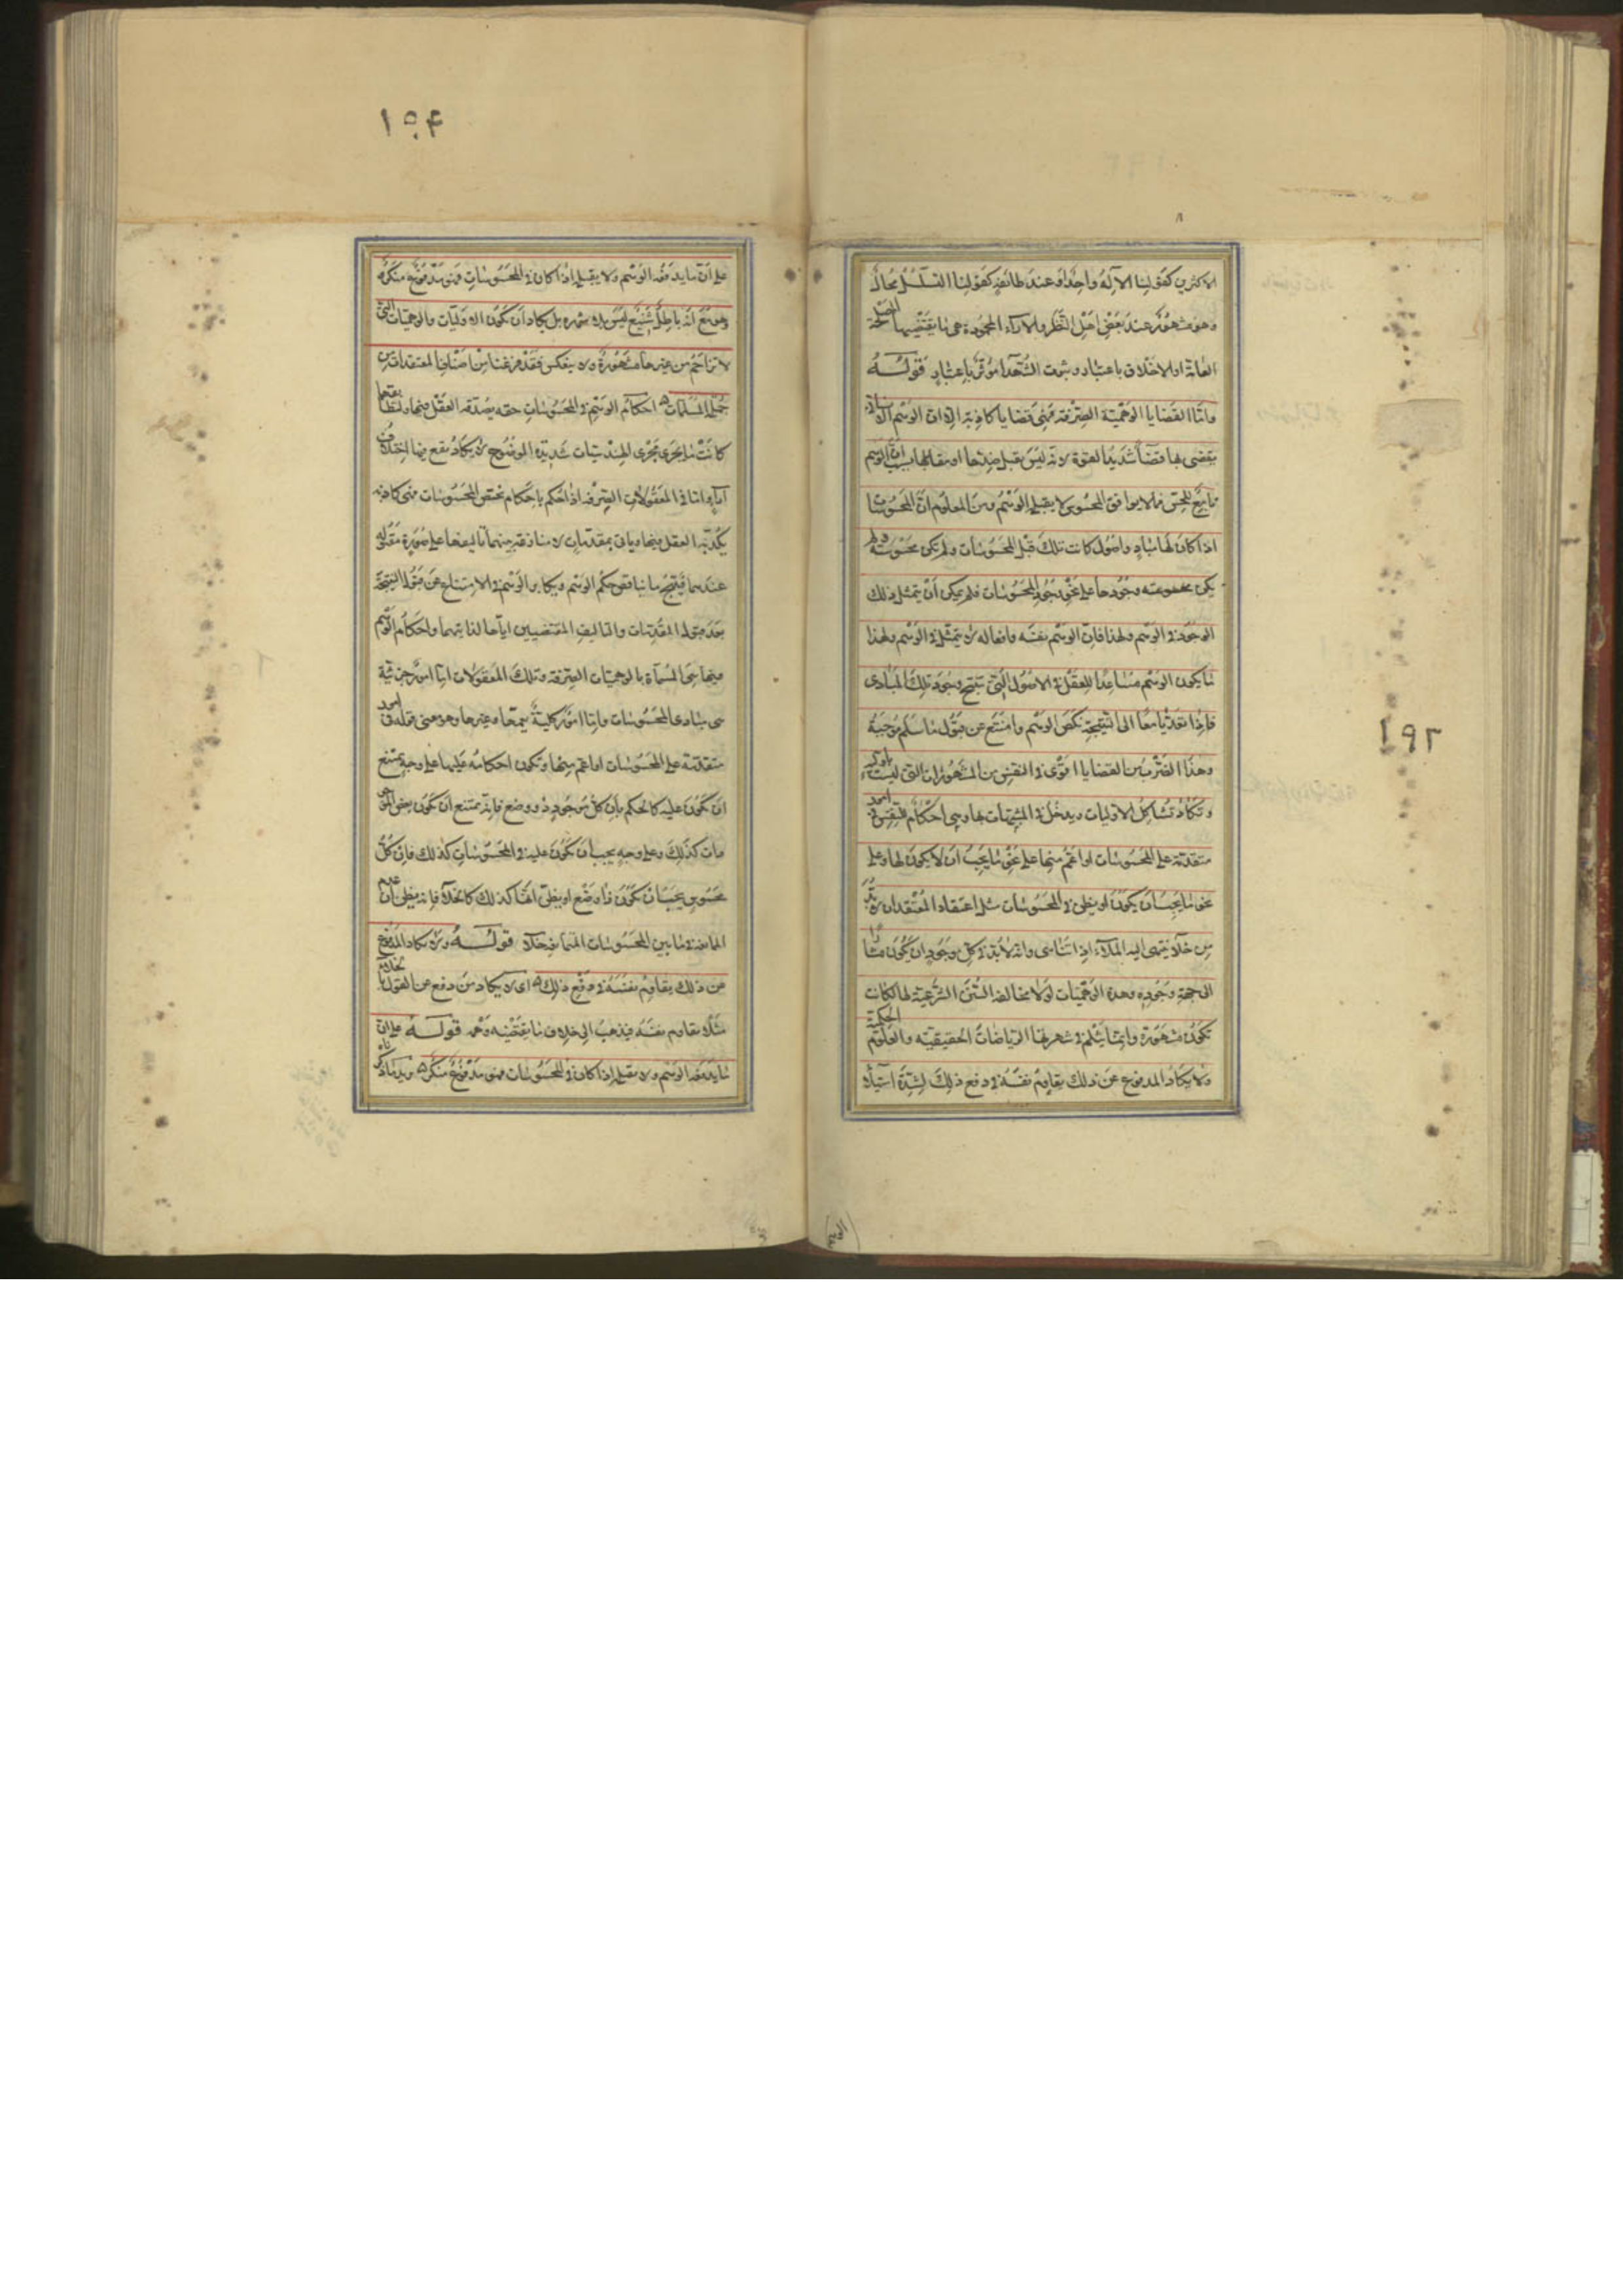 الاكثرين كقولنا الاله واحد او عند طائفة كقولنا التسلسل محال
وهو مشهور عند بعض اهل النظر والاراء المحمودة هى ما يقتضيها المصلحة
العامة او الاخلاق باعتبار قوله
واما القضايا الوهمية الصرفة فهى قضايا كاذبة الا ان الوهم الانسانى
يقضى بها قضاء شديد القوة لانه ليس يقبل ضدها او مقابلها بسبب ان الوهم
تابع للحس فما لا يوافق المحسوس لا يقبله الوهم ومن المعلوم ان المحسوسات
اذا كان لها مباد واصول كانت تلك قبل المحسوسات ولم تكن محسوسة ولم
يكن وجودها على نحو وجود المحسوسات فلم يمكن ان يتمثل ذلك
الوجود فى الوهم ولهذا فان الوهم نفسه وافعاله لا يتمثل فى الوهم ولهذا
ما يكون الوهم مساعدا للعقل فى الاصول التى تنتج وجود تلك المبادى
فاذا تعديا معا الى النتيجة نكص الوهم وامتنع عن قبول ما سلم موجبه
وهذا الضرب من القضايا اقوى فى النفس من المشهورات التى ليست باولية
وتكاد تشاكل الاوليات ويدخل فى المشبهات بها وهى احكام للنفس فى امور
متقدمة على المحسوسات او اعم منها على نحو ما يجب ان لا يكون لها وعلى
نحو ما يجب ان يكون او يظن فى المحسوسات مثل اعتقاد المعتقد ان لا بد
من خلاء ينتهى اليه الملاء اذا تناهى وانه لا بد فى كل موجود ان يكون مشارا
الى جهة وجوده وهذه الوهميات لولا مخالفة السنن الشرعية لها لكانت
تكون مشهورة وانما يثلم فى شهرتها الرياضات الحقيقية والعلوم الحكمية
ولا يكاد المدفوع عن ذلك يقاوم نفسه فى دفع ذلك لشدة استيلاء
١٩٢
١٩۴
على ان ما يدفعه الوهم ولا يقبله اذا كان فى المحسوسات فهو مدفوع منكر
وهو مع انه باطل شنع ليس بلا شهرة بل يكاد ان تكون الاوليات والوهميات التى
لا تزاحم من غيرها مشهورة ولا ينعكس فقد فرغنا من اصناف المعتقدات من
جملة المسلمات احكام الوهم فى المحسوسات حقة يصدقه العقل فيها ولتطابقهما
كانت ما يجرى مجرى الهندسيات شديدة الوضوح لا يكاد يقع فيها اختلاف
آراء واما فى المعقولات الصرفة اذا حكم باحكام تختص المحسوسات فهى كاذبة
يكذبه العقل فيها ويأتى بمقدمات لا منازعة فيها تأليفها على صورة مقبولة
عندهما فينتج ما يناقض حكم الوهم ويكابر الوهم فى الامتناع عن قبول النتيجة
بعد قبول المقدمات والتأليف المقتضيين اياها لذاتيهما واحكام الوهم
فيها هى المسماة بالوهميات الصرفة وتلك المعقولات اما امور جزئية
هى مبادى المحسوسات واما امور كلية يعمها وغيرها وهو معنى قوله فى امور
متقدمة على المحسوسات او اعم منها وتكون احكامه عليها على وجه يمتنع
ان تكون عليه كالحكم بان كل موجود ذو وضع فانه يمتنع ان تكون بعض الموجو
دات كذلك وعلى وجه يجب ان تكون عليه فى المحسوسات كذلك فان كل
محسوس يجب ان تكون ذا وضع او يظن انها كذلك كالخلاء فانه يظن ان عدم
الممانعة ما بين المحسوسات المتمانعة خلاء قوله ولا يكاد المدفوع
عن ذلك يقاوم نفسه فى دفع ذلك اى لا يكاد من دفع عن القول بالخلاء
مثلا يقاوم نفسه فيذهب الى خلاف ما يقتضيه وهمه قوله على ان
ما يدفعه الوهم ولا يقبله اذا كان فى المحسوسات فهو مدفوع منكر